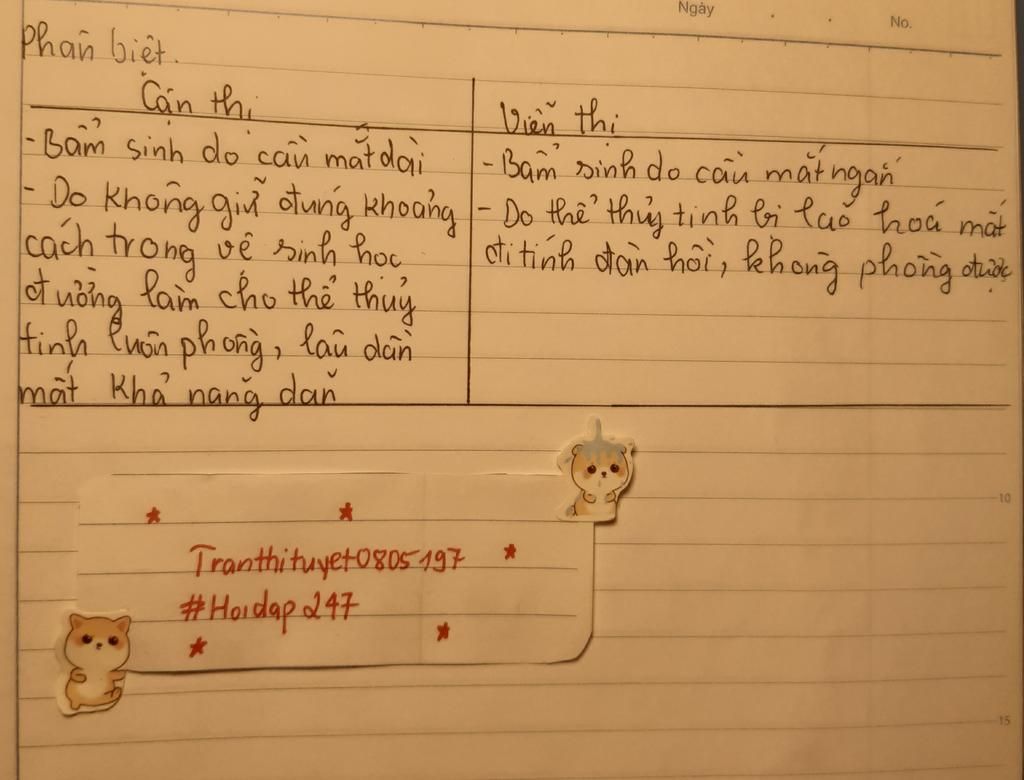 Ngày
No.
Phân biệt.
Cận thị
- Bẩm sinh do cầu mắt dài
- Do không giữ đúng khoảng
cách trong vệ sinh học
đường làm cho thể thủy
tinh luôn phồng, lâu dần
mất khả năng dãn
Viễn thị
- Bẩm sinh do cầu mắt ngắn
- Do thể thủy tinh bị lão hoá mất
đi tính đàn hồi, không phồng được
10
Tranthituyet0805197
#Hoidap247
15